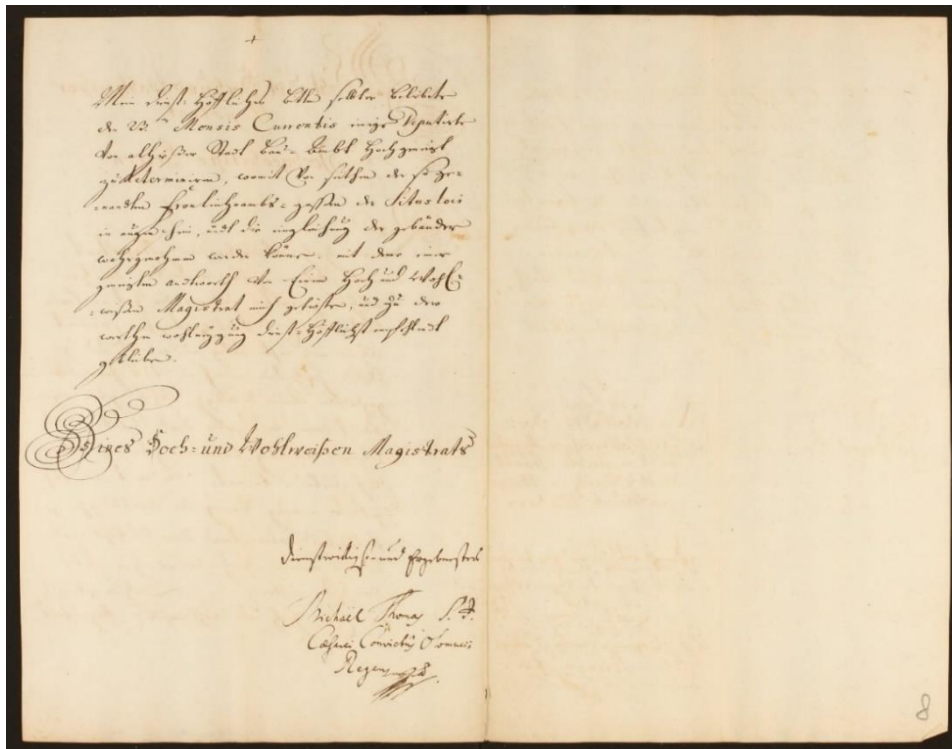 Mein dienst-höfliches bitten selbter beliebete
den 23.ten Mensis Currentis einige Deputierte
Von allhießer Stadt Bau-Ambt Hochgeneigt
zu Determiniren, womit Von seithen der so ge-
-nandten gassen der Situs loci
in augenschein, undt die der gebäuden
wahrgenohmen werden könne. mit dero einer
geneigten andtworth Von Einem Hoch und Wohl-
-weißen Magistrat mich getröste, und zu dero
werthen wohlneigung dienst-höflichst empfohlendt
gebleiben.
Eines Hoch- und Wohlweißen Magistrats
dienstwilligst- und Ergebenster
Michaël Thomas S. J.
Cæsarei Convictûs
Regens
8